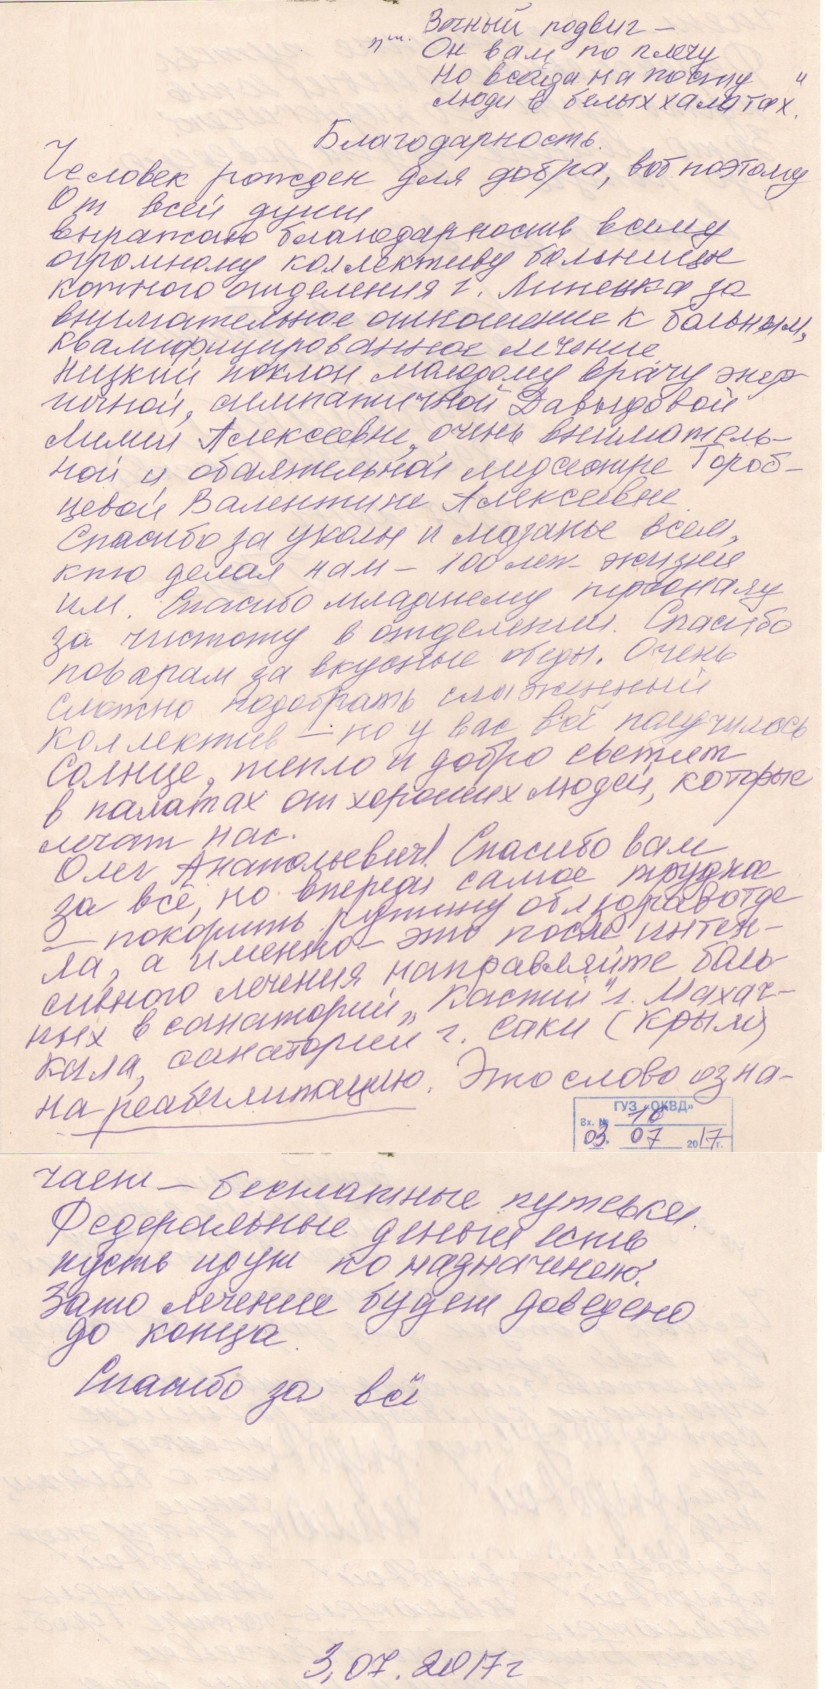 „... Вечный подвиг —
Он вам по плечу
Но всегда на посту
люди в белых халатах."
Благодарность.
Человек рожден для добра, вот поэтому
От всей души
выражаю благодарность всему
огромному коллективу больницы
кожного отделения г. Липецка за
внимательное отношение к больным,
квалифицированное лечение
Низкий поклон молодому врачу энер-
гичной, симпатичной Давыдовой
Лилии Алексеевне, очень вниматель-
ной и обаятельной медсестре Гороб-
цевой Валентине Алексеевне
Спасибо за уколы и мазанье всем,
кто делал нам — 100 лет жизни
им. Спасибо младшему персоналу
за чистоту в отделении. Спасибо
поварам за вкусные обеды. Очень
сложно подобрать слаженный
коллектив — но у вас всё получилось
Солнце, тепло и добро светит
в палатах от хороших людей, которые
лечат нас.
Олег Анатольевич! Спасибо вам
за всё, но впереди самое трудное
— покорить рутину облздравотде
ла, а именно — это после интен-
сивного лечения направляйте боль-
ных в санаторий „Каспий" г. Махач-
кала, санаторий г. Саки (Крым)
на реабилитацию. Это слово озна-
ГУЗ «ОКВД»
Вх. № 18
03 07 2017 г.
чает — бесплатные путевки.
Федеральные деньги есть
пусть идут по назначению.
Зато лечение будет доведено
до конца
Спасибо за всё
3.07.2017 г